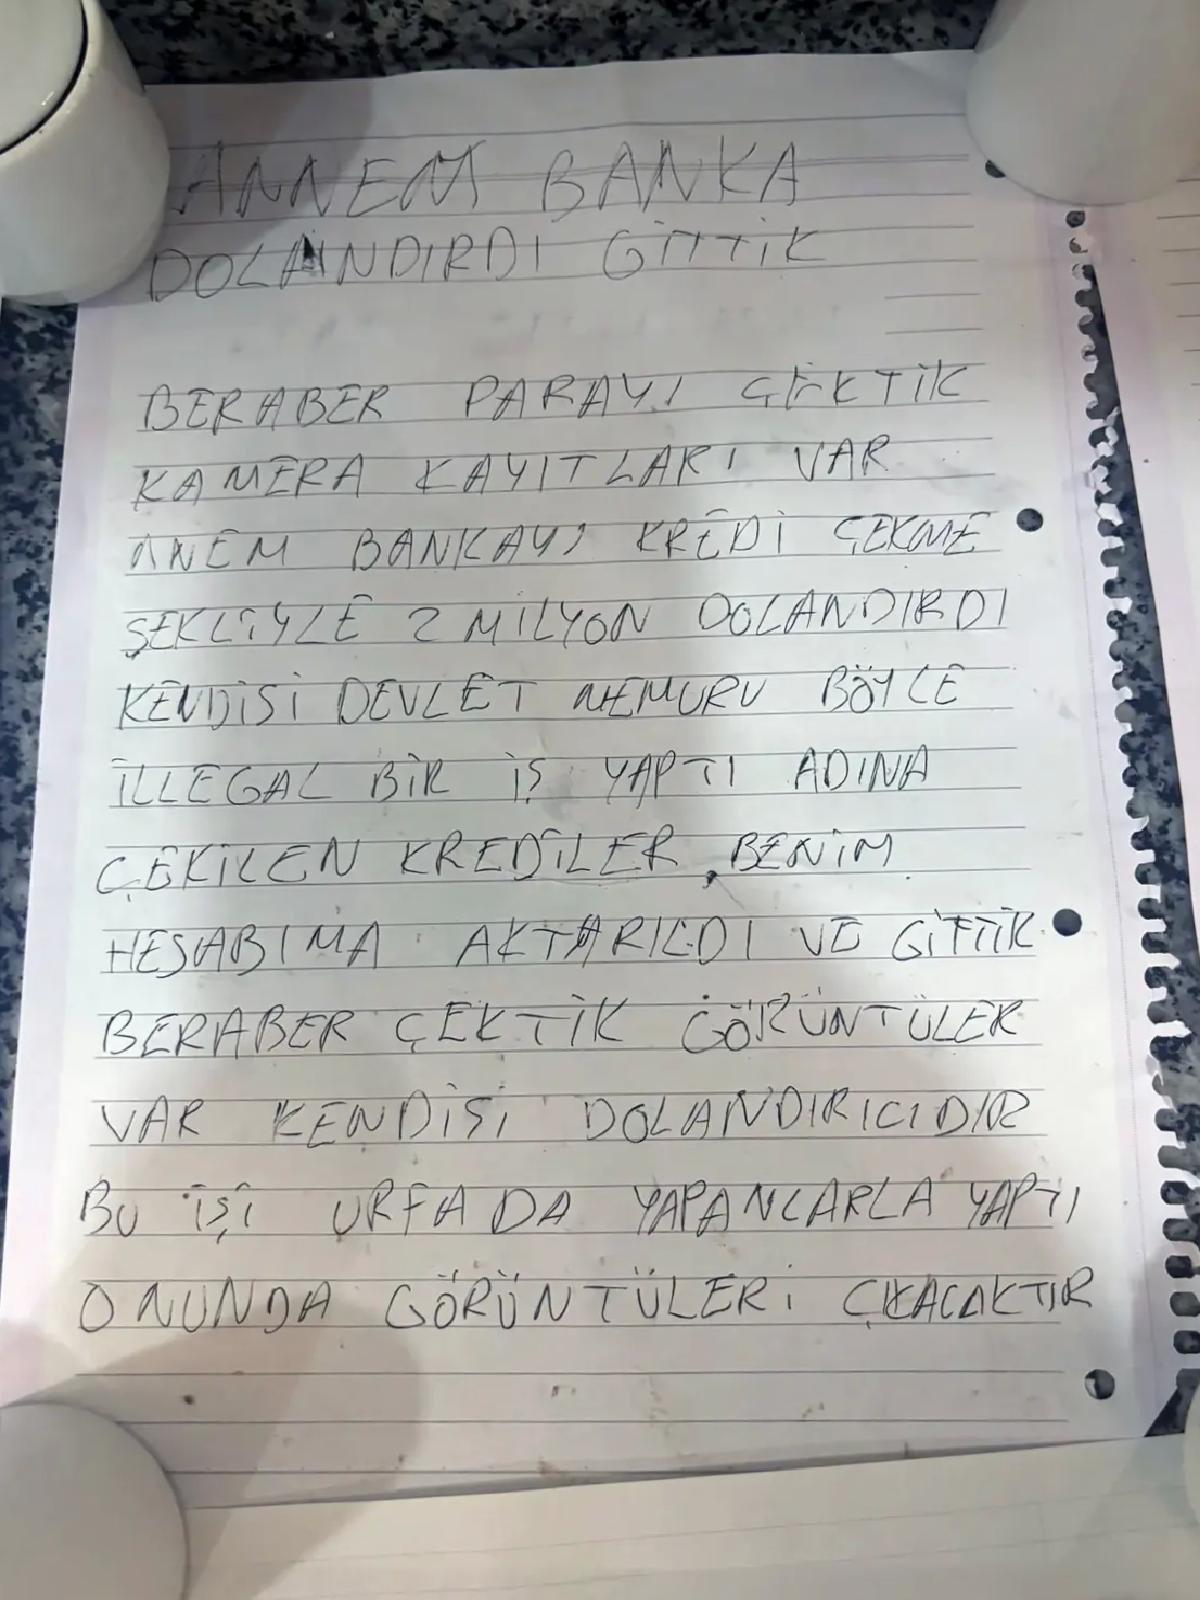 ANNEM BANKA
DOLANDIRDI GİTTİK
BERABER PARAYI ÇEKTİK
KAMERA KAYITLARI VAR
ANEM BANKAYI KREDİ ÇEKME
ŞEKLİYLE 2 MİLYON DOLANDIRDI
KENDİSİ DEVLET MEMURU BÖYLE
İLLEGAL BİR İŞ YAPTI ADINA
ÇEKİLEN KREDİLER, BENİM
HESABIMA AKTARILDI VE GİTTİK
BERABER ÇEKTİK GÖRÜNTÜLER
VAR KENDİSİ DOLANDIRICIDIR
BU İŞİ URFA DA YAPANLARLA YAPTI
ONUNDA GÖRÜNTÜLERİ ÇIKACAKTIR